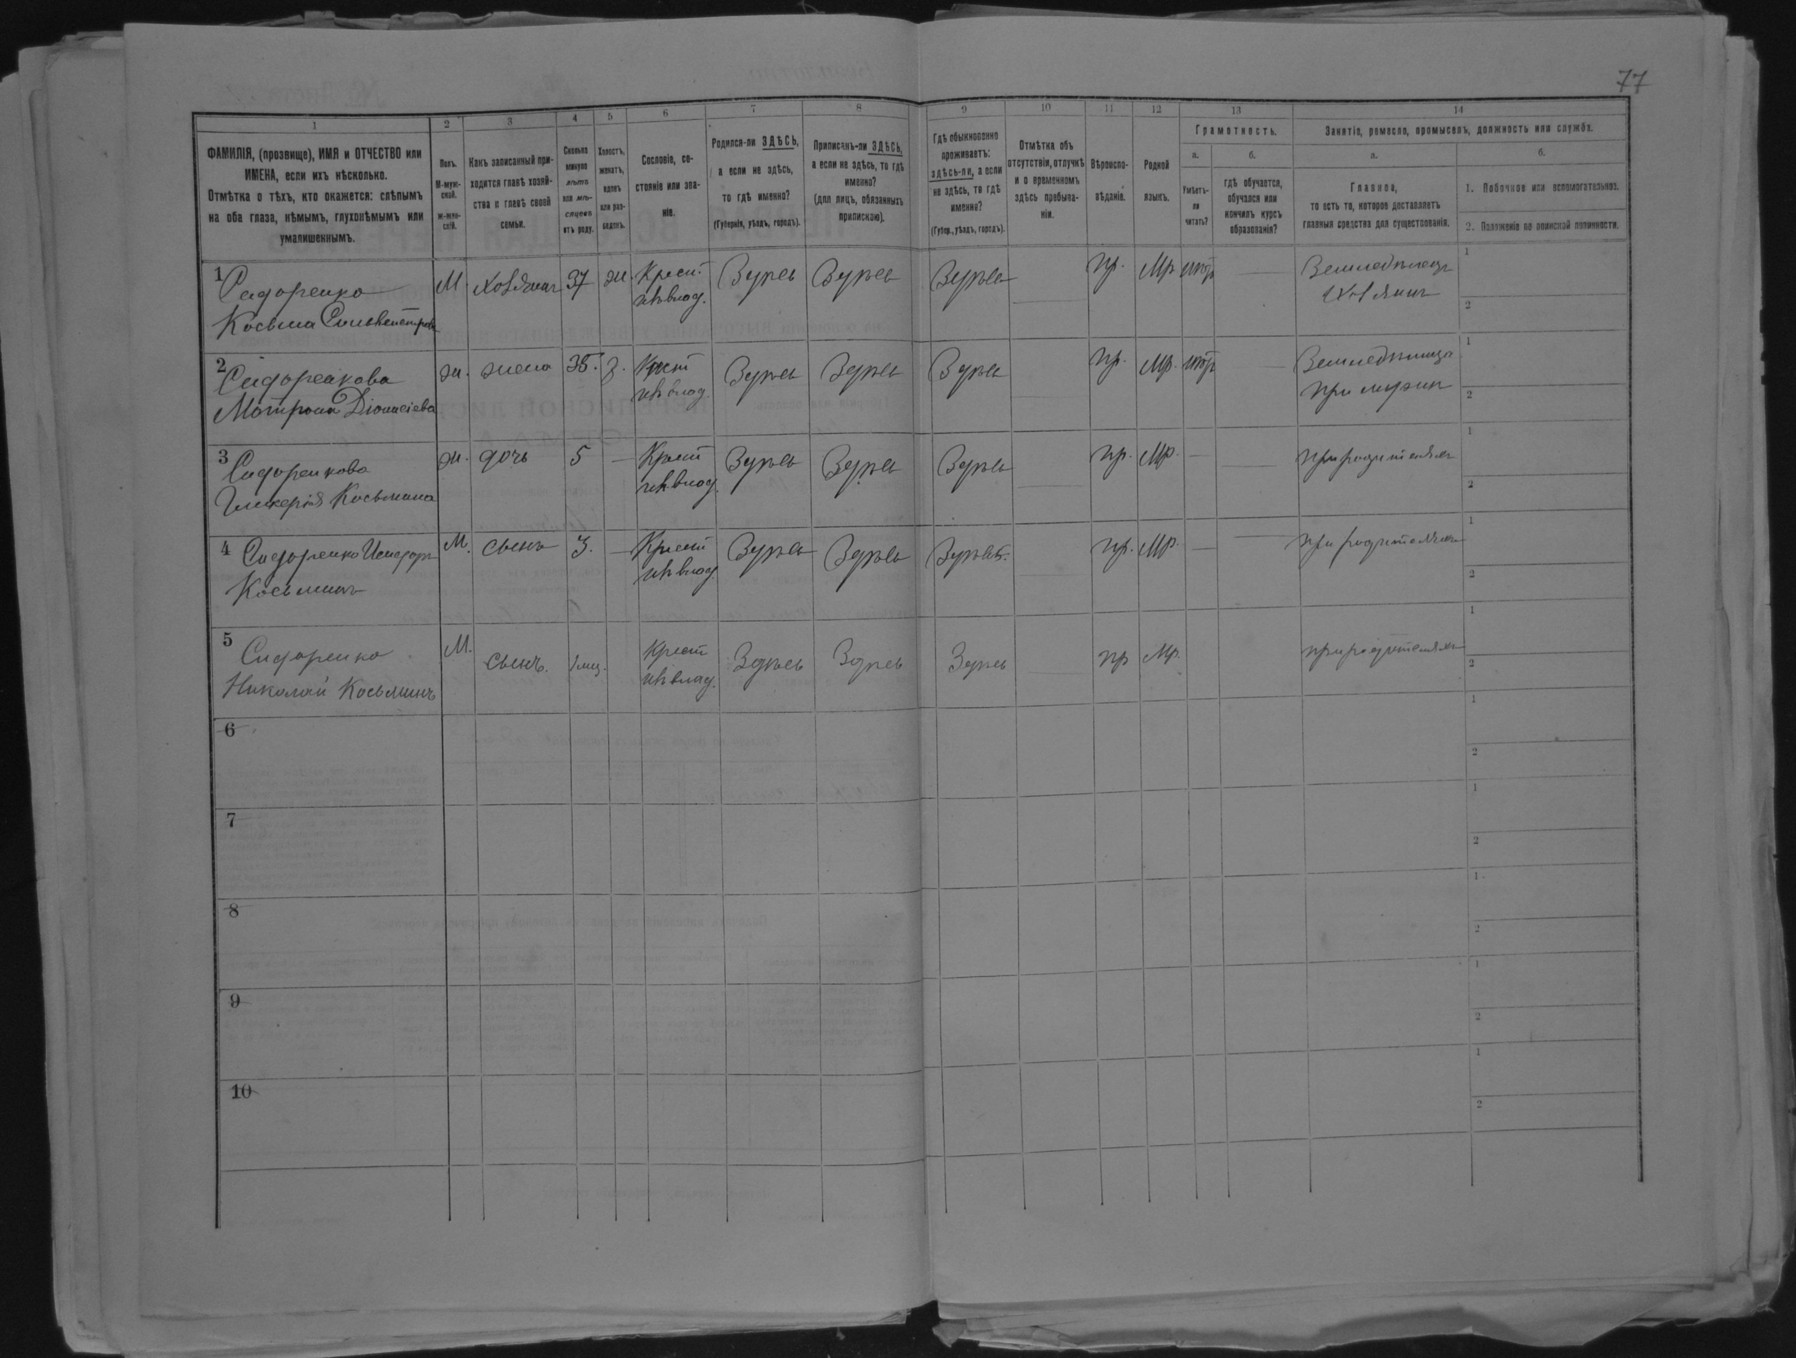 77
1 2 3 4 5 6 7 8 9 10 11 12 13 14
ФАМИЛІЯ, (прозвище), ИМЯ и ОТЧЕСТВО или
ИМЕНА, если ихъ нѣсколько.
Отмѣтка о тѣхъ, кто окажется: слѣпымъ
на оба глаза, нѣмымъ, глухонѣмымъ или
умалишеннымъ.
Полъ.
М-муж-
ской.
ж-жен-
скій.
Какъ записанный при-
ходится главѣ хозяй-
ства и главѣ своей
семьи.
Сколько
минуло
лѣтъ
или мѣ-
сяцевъ
отъ роду.
Холостъ,
женатъ,
вдовъ
или раз-
веденъ.
Сословіе, со-
стояніе или зва-
ніе.
Родился-ли ЗДѢСЬ,
а если не здѣсь,
то гдѣ именно?
(Губернія, уѣздъ, городъ).
Приписанъ-ли ЗДѢСЬ,
а если не здѣсь, то гдѣ
именно?
(для лицъ, обязанныхъ
припискою).
Гдѣ обыкновенно
проживаетъ:
здѣсь-ли, а если
не здѣсь, то гдѣ
именно?
(Губер., уѣздъ, городъ).
Отмѣтка объ
отсутствіи, отлучкѣ
и о временномъ
здѣсь пребыва-
ніи.
Вѣроиспо-
вѣданіе.
Родной
языкъ.
Грамотность.
а.
Умѣетъ-
ли
читать?
б.
гдѣ обучается,
обучался или
кончилъ курсъ
образованія?
Занятіе, ремесло, промыселъ, должность или служба.
а.
Главное,
то есть то, которое доставляетъ
главныя средства для существованія.
б.
1. Побочное или вспомогательное.
2. Положеніе по воинской повинности.
1 Сидоренко М. хозяинъ 37 ж. Крест. Здѣсь Здѣсь Здѣсь пр. Мр. нѣтъ Земледѣлецъ 1
Косьма Сильвестровъ изъ влад. хозяинъ 2
2 Сидоренкова ж. жена 35. з. Крест Здѣсь Здѣсь Здѣсь пр. Мр. нѣтъ Земледѣлица 1
Матрона Діонисіева изъ влад. при мужѣ 2
3 Сидоренкова ж. дочь 5 Крест Здѣсь Здѣсь Здѣсь пр. Мр. при родителяхъ 1
Гликерія Косьмина изъ влад. 2
4 Сидоренко Исидоръ М. сынъ 3. Крест Здѣсь Здѣсь Здѣсь пр. Мр. при родителяхъ 1
Косьминъ изъ влад. 2
5 Сидоренко М. сынъ. 1 мц. Крест Здѣсь Здѣсь Здѣсь пр Мр. при родителяхъ 1
Николай Косьминъ изъ влад. 2
6 1
2
7 1
2
8 1
2
9 1
2
10 1
2